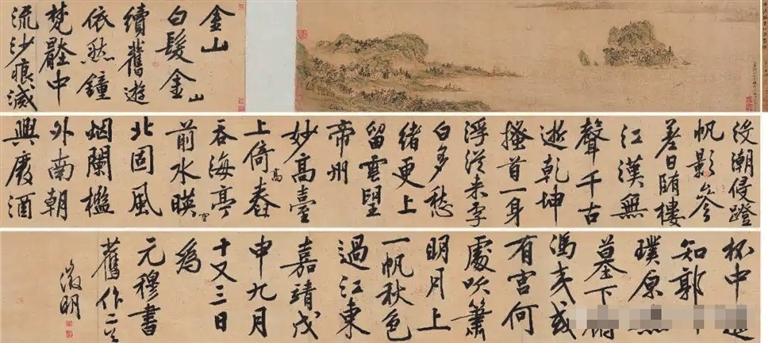 金山
白髮金山
續舊遊
依然鐘
梵壑中
流沙痕滅
没潮侵蹬
帆影參
差日随樓
江漢無
聲千古
逝乾坤
搔首一身
浮從来李
白多愁
緒更上
留雲望
帝州
妙高臺
上倚高舂
吞海亭
前水暎空
北固風
烟闌檻
外南朝
興廢酒
杯中
知郭
璞原
墓下
馮夷或
有宮何
處吹簫
明月上
一帆秋色
過江東
嘉靖戊
申九月
十又三日
為
元穆書
舊作二首
徵明